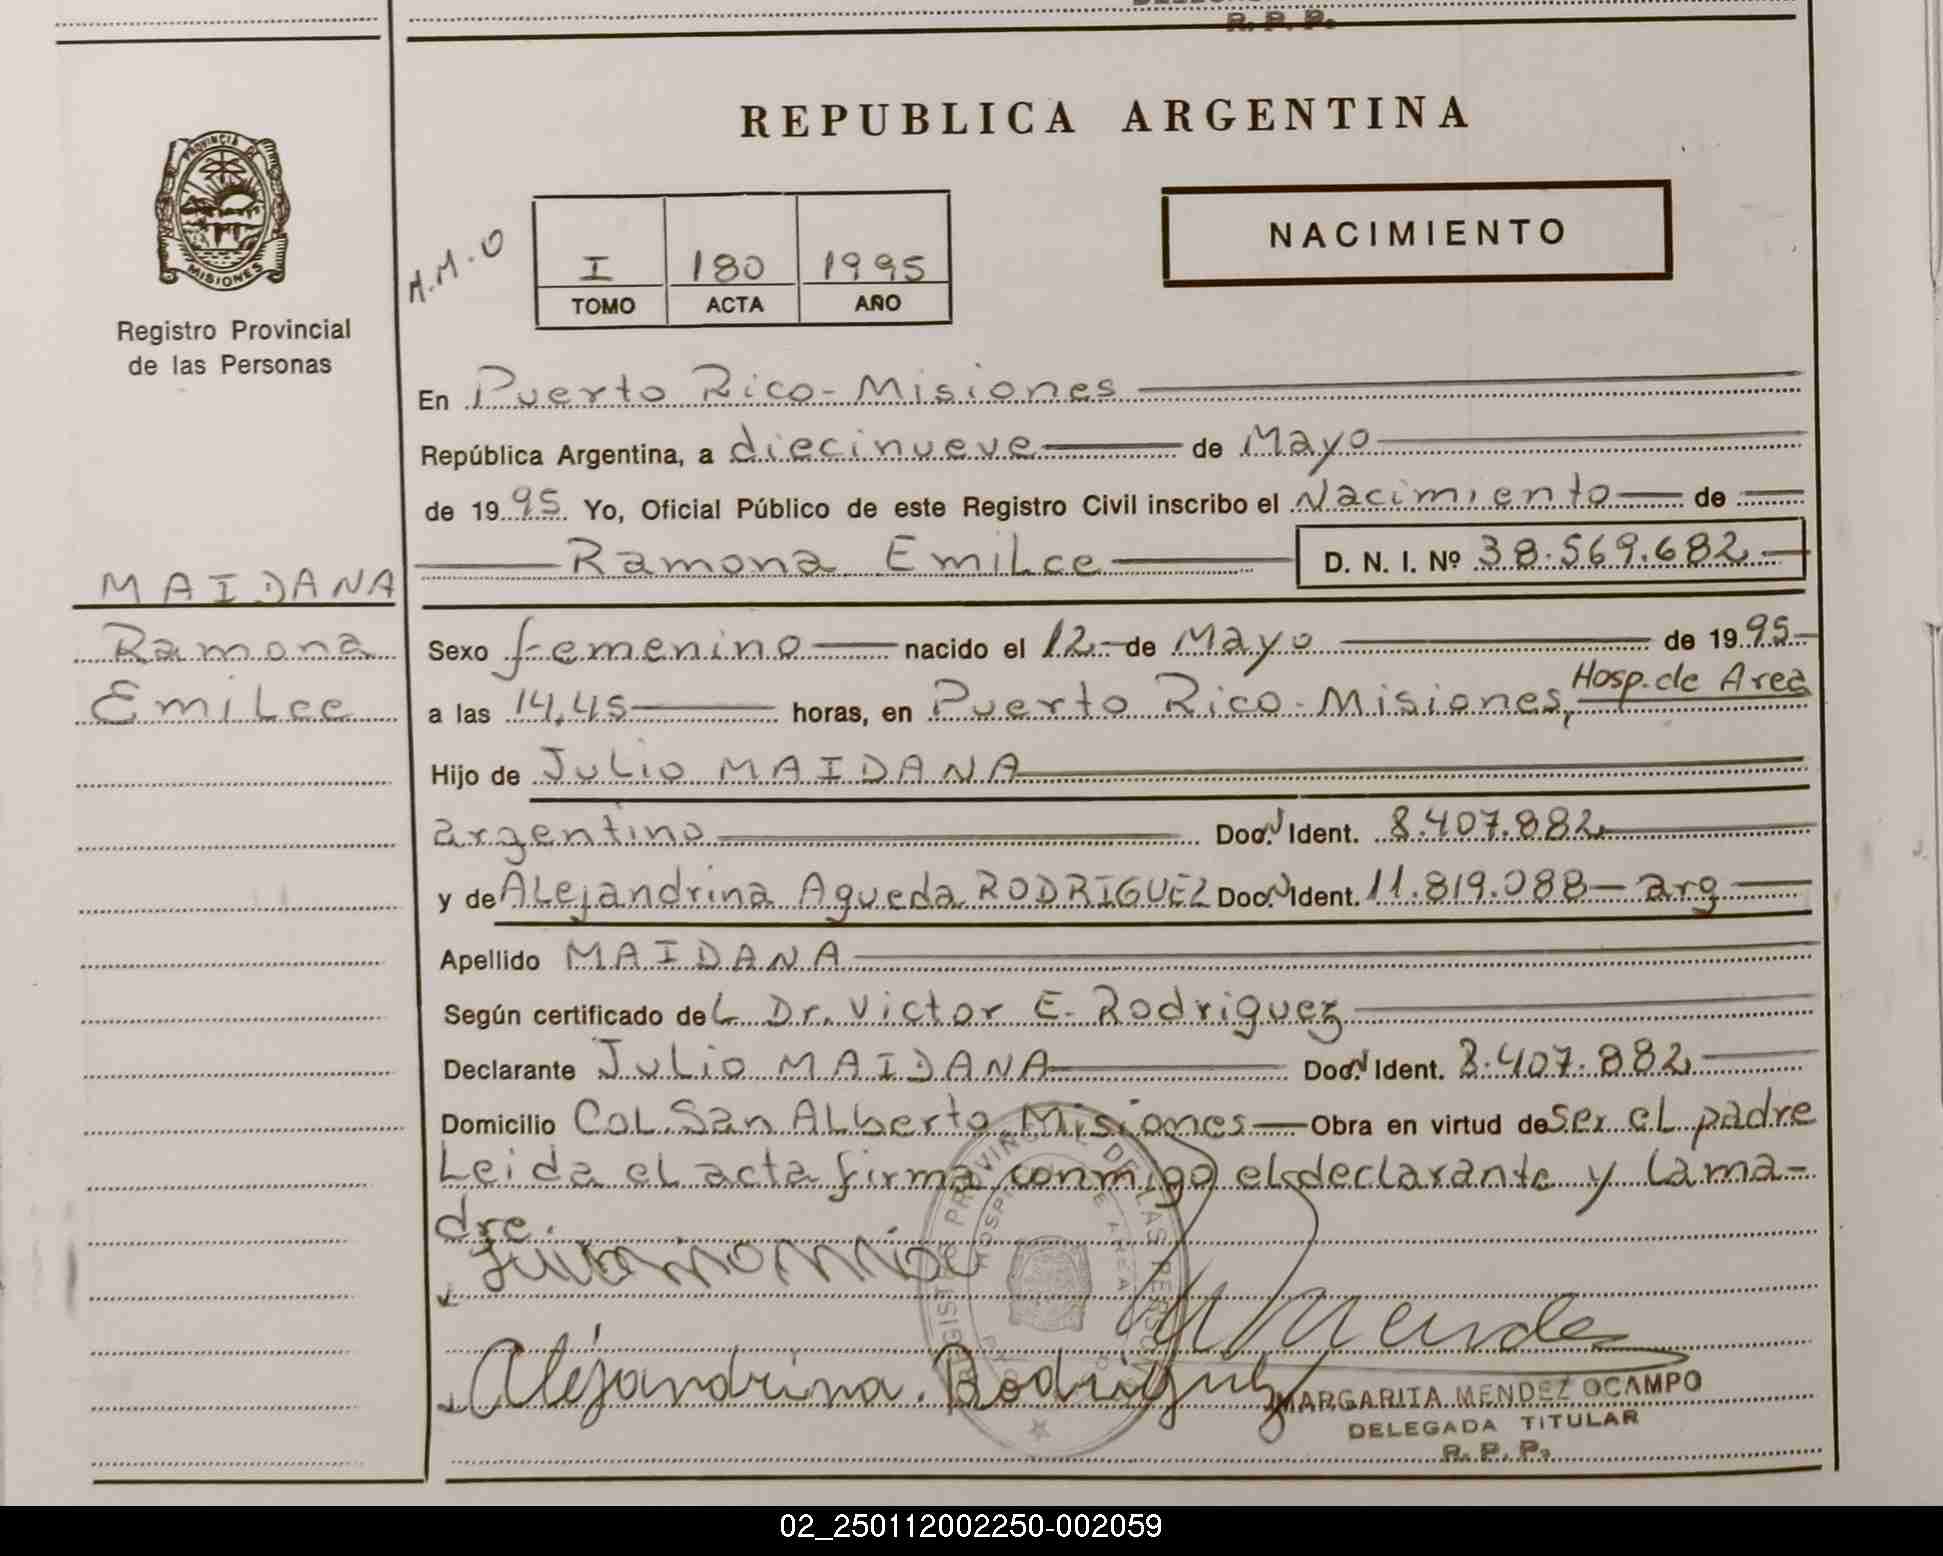 R. P. P.
REPUBLICA ARGENTINA
PROVINCIA DE
MISIONES
Registro Provincial
de las Personas
M.M.O
I 180 1995
TOMO ACTA AÑO
NACIMIENTO
En Puerto Rico - Misiones
República Argentina, a diecinueve de Mayo
de 1995 Yo, Oficial Público de este Registro Civil inscribo el Nacimiento de
Ramona Emilce D. N. I. Nº 38.569.682
MAIDANA
Ramona
Emilce
Sexo femenino nacido el 12 de Mayo de 1995
a las 14,45 horas, en Puerto Rico - Misiones, Hosp. de Area
Hijo de Julio MAIDANA
argentino Doc. N Ident. 8.407.882
y de Alejandrina Agueda RODRIGUEZ Doc. N Ident. 11.819.088 - arg
Apellido MAIDANA
Según certificado del Dr. Victor E. Rodriguez
Declarante Julio MAIDANA Doc. N Ident. 8.407.882
Domicilio Col. San Alberto Misiones Obra en virtud de ser el padre
Leida el acta firma conmigo el declarante y la ma-
dre.
Alejandrina. Rodriguez
MARGARITA MENDEZ OCAMPO
DELEGADA TITULAR
R. P. P.
02_250112002250-002059